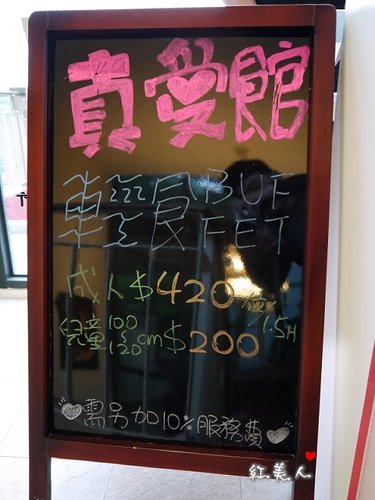 真愛館
輕食BUF
FET
成人$420/位/1.5H
兒童100~120cm$200
需另加10%服務費
紅美人